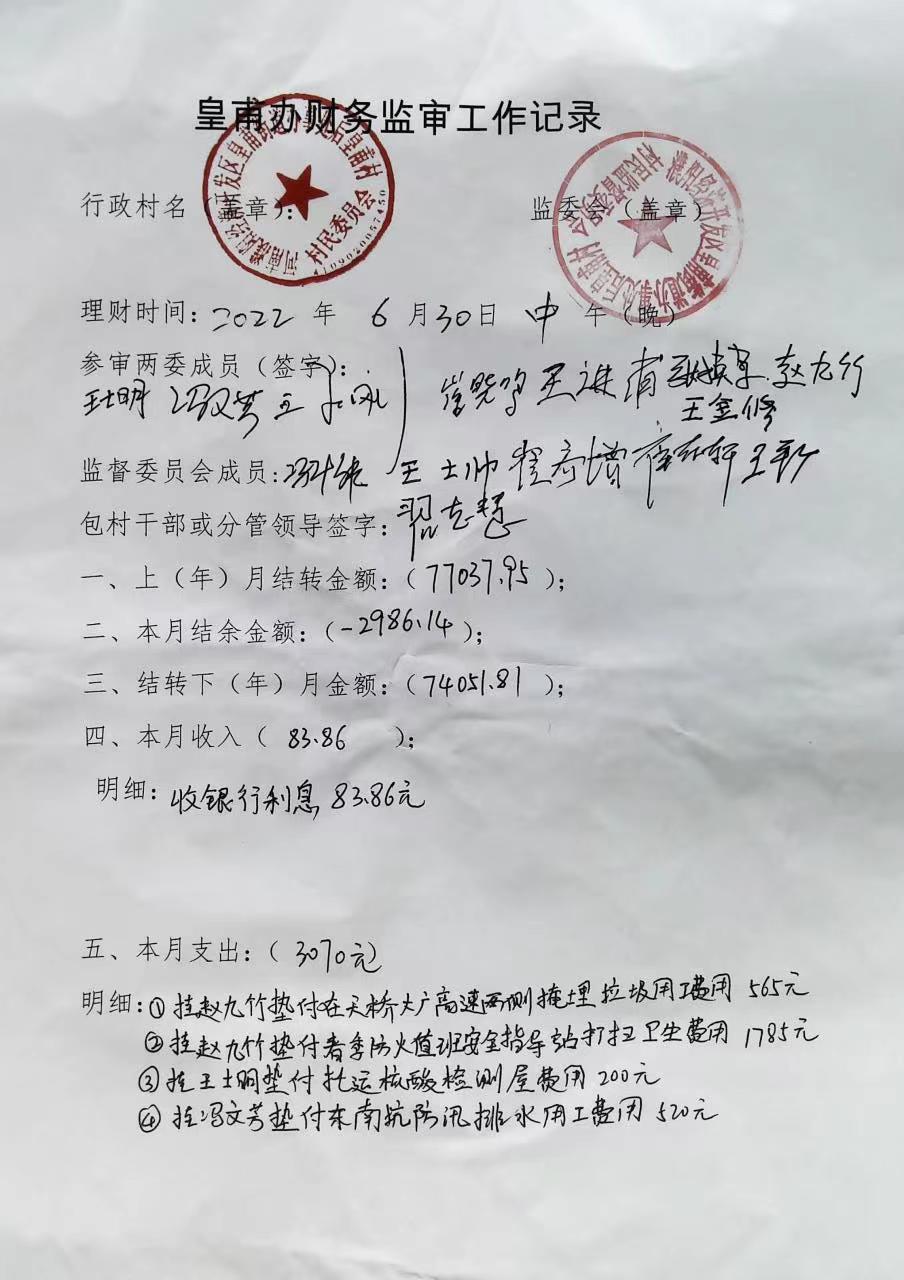 皇甫办财务监审工作记录
行政村名（盖章）：
监委会（盖章）
村民委员会
4109020057450
理财时间：2022 年 6 月 30 日 中 午（晚）
参审两委成员（签字）：
赵九竹
王金修
监督委员会成员： 王士帅
包村干部或分管领导签字：翟志慧
一、上（年）月结转金额：（77037.95）；
二、本月结余金额：（-2986.14）；
三、结转下（年）月金额：（74051.81）；
四、本月收入（ 83.86 ）；
明细：收银行利息 83.86元
五、本月支出：（ 3070元）
明细：①挂赵九竹垫付在天桥大广高速两侧掩埋垃圾用工费用 565元
②挂赵九竹垫付春季防火值班安全指导站打扫卫生费用 1785元
③挂王士明垫付托运核酸检测屋费用 200元
④挂冯文芳垫付东南坑防汛排水用工费用 520元